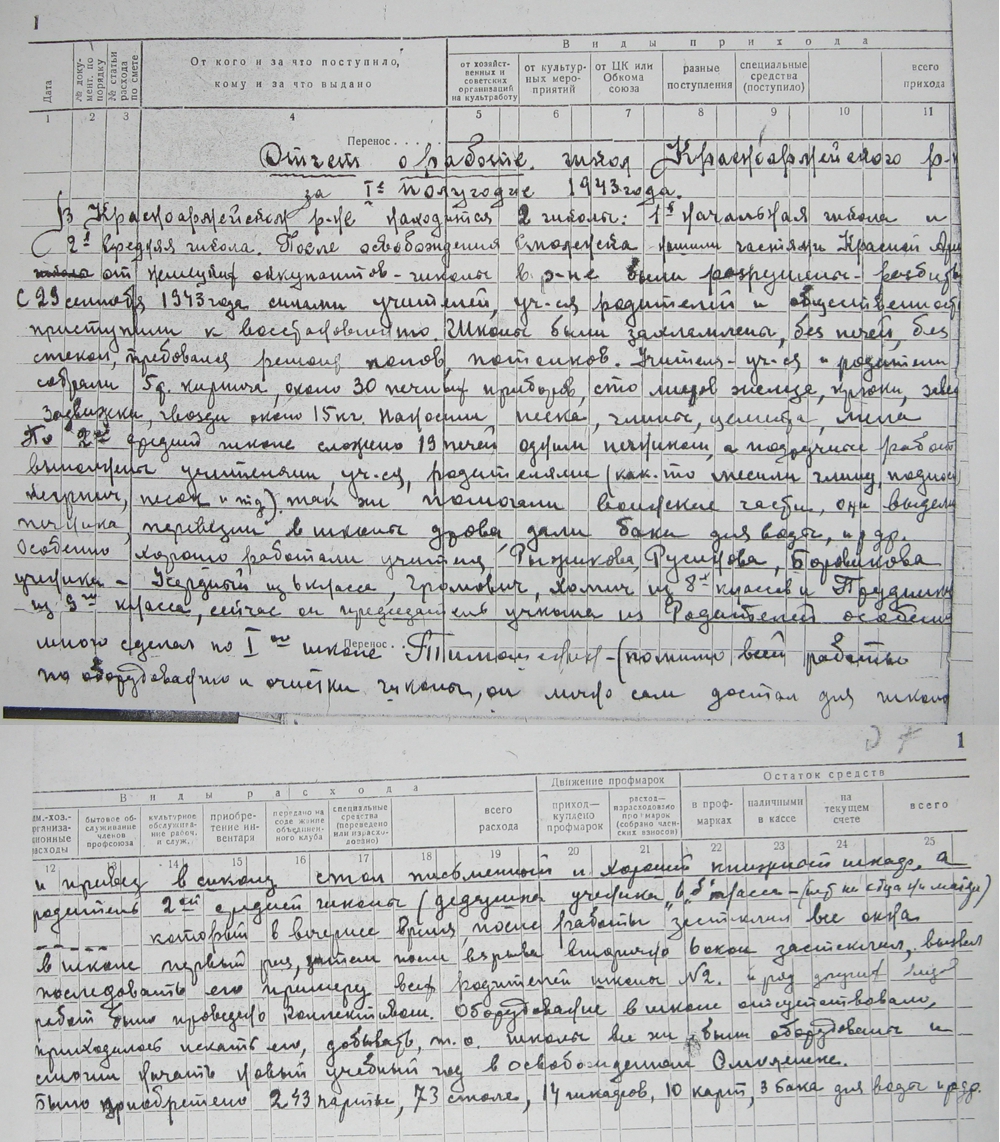 1
Виды прихода
Дата
№ доку-мент. по порядку
№ статьи расхода по смете
От кого и за что поступило,
кому и за что выдано
от хозяйст-венных и советских организаций на культработу
от культур-ных меро-приятий
от ЦК или Обкома союза
разные поступления
специальные средства (поступило)
всего прихода
1 2 3 4 5 6 7 8 9 10 11
Перенос . . . .
Отчет о работе школ Красноармейского р-н
за Iе полугодие 1943 года.
В Красноармейском р-не находится 2 школы: 1я начальная школа и
2я средняя школа. После освобождения Смоленска нашими частями Красной Арм
от немецких оккупантов - школы в р-не были разрушены - разбиты
С 29 сентября 1943 года силами учителей, уч-ся родителей и общественност
приступили к восстановлению. Школы были захламлены, без печей, без
стекол, требовался ремонт полов, потолков. Учителя - уч-ся и родители
собрали 5 т. кирпича, около 30 печных приборов, сто листов железа, крюки,
задвижки, гвозди около 15 кг. наносили песка, глины, цемента,
По 2ой средней школе сложено 19 печей одним печником, а подручные работы
выполнены учителями, уч-ся, родителями (как-то месили глину, поднос
кирпич, песок и т.д.) так же помогали воинские части, они выдели
печника, перевезли в школы дрова, дали баки для воды, и др.
Особенно хорошо работали учителя Рыжикова, Русинова, Боровикова
ученики - Усердный из 6 класса, Громович, Хомич из 8х классов и
из 9го класса, сейчас он председатель учкома из Родителей особенно
много сделал по Iой школе - (помимо всей работы
Перенос . .
по оборудованию и очистки школы, он лично сам достал для школы
1
Виды расхода
Движение профмарок
Остаток средств
бытовое об-служивание членов профсоюза
культурное обслужива-ние рабоч. и служ.
приобре-тение ин-вентаря
передано на соде жание объединен-ного клуба
специальные средства (переведено или израсхо-довано)
всего расхода
приход—куплено профмарок
расход—израсходовано про-марок (собрано член-ских взносов)
в проф-марках
наличными в кассе
на текущем счете
всего
12 13 14 15 16 17 18 19 20 21 22 23 24 25
и привез в школу стол письменный и хороший книжный шкаф, а
родитель 2ой средней школы (дедушка ученика 6 класса -
который в вечернее время после работы застеклил все окна
в школе первый раз, затем после взрыва вторично 6 окон застеклил, вызвал
последовать его примеру всех родителей школы № 2. и ряд других видов
работ было проведено коллективом. Оборудование в школе отсутствовало,
приходилось искать его, добывать, т.о. школы все же были оборудованы и
смогли начать новый учебный год в освобожденном Смоленске.
Было приобретено 243 парты, 73 стола, 14 шкафов, 10 карт, 3 бака для воды и др.